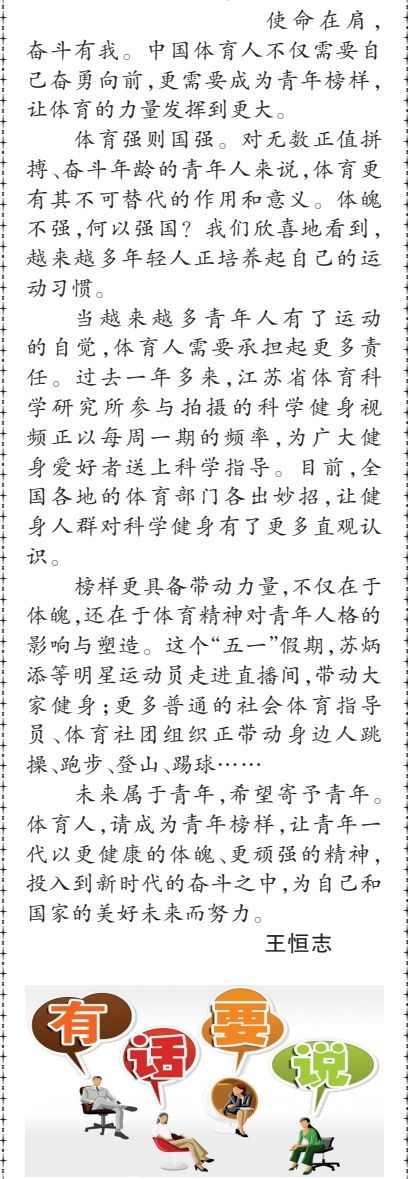 使命在肩，
奋斗有我。中国体育人不仅需要自
己奋勇向前,更需要成为青年榜样,
让体育的力量发挥到更大。
体育强则国强。对无数正值拼
搏、奋斗年龄的青年人来说,体育更
有其不可替代的作用和意义。体魄
不强,何以强国？我们欣喜地看到,
越来越多年轻人正培养起自己的运
动习惯。
当越来越多青年人有了运动
的自觉,体育人需要承担起更多责
任。过去一年多来,江苏省体育科
学研究所参与拍摄的科学健身视
频正以每周一期的频率,为广大健
身爱好者送上科学指导。目前,全
国各地的体育部门各出妙招,让健
身人群对科学健身有了更多直观认
识。
榜样更具备带动力量,不仅在于
体魄,还在于体育精神对青年人格的
影响与塑造。这个“五一”假期,苏炳
添等明星运动员走进直播间,带动大
家健身;更多普通的社会体育指导
员、体育社团组织正带动身边人跳
操、跑步、登山、踢球……
未来属于青年,希望寄予青年。
体育人,请成为青年榜样,让青年一
代以更健康的体魄、更顽强的精神,
投入到新时代的奋斗之中,为自己和
国家的美好未来而努力。
王恒志
有话要说